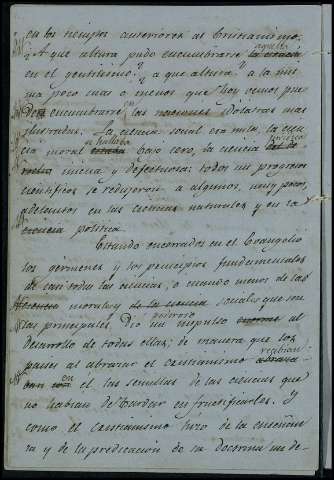 en los tiempos anteriores al Cristianismo.
¿A que altura pudo encumbrarse aquella
en el gentilismo? ¿a que altura? a la mis
ma poco mas o menos que hoy vemos pue
de encumbrarse en las naciones idólatras mas
ilustradas. La ciencia social era nula, la cien
cia moral se hallaba bajo cero, la ciencia
inicua y defectuosa: todos sus progresos
científicos se redujeron a algunos, muy pocos,
adelantos en las ciencias naturales y en la
ciencia politica.
Estando encerrados en el Evangelio
los gérmenes y los principios fundamentales
de casi todas las ciencias, o cuando menos de las
morales y sociales que son
las principales, dió un impulso poderoso al
desarrollo de todas ellas; de manera que los
paises al abrazar el cristianismo recibian
en el las semillas de las ciencias que
no habian de tardar en fructificarles. Y
como el cristianismo hizo de la enseñan
za y de la predicacion de su doctrina un de-